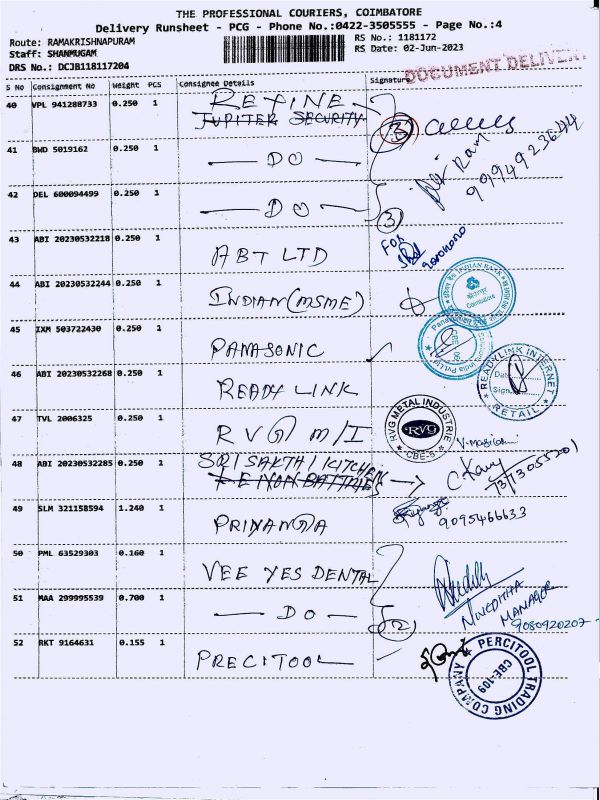 THE PROFESSIONAL COURIERS, COIMBATORE
Delivery Runsheet - PCG - Phone No.:0422-3505555 - Page No.:4
Route: RAMAKRISHNAPURAM
Staff: SHANMUGAM
DRS No.: DCJB118117204
RS No.: 1181172
RS Date: 02-Jun-2023
DOCUMENT DELIVER
S No Consignment No Weight PCS Consignee Details Signature
40 VPL 941288733 0.250 1 REFINE
JUPITER SECURITY
3
41 BWD 5019162 0.250 1 — DO —
Ram
9994923644
42 DEL 600094499 0.250 1 — DO —
3
43 ABI 20230532218 0.250 1 ABT LTD
FOR
44 ABI 20230532244 0.250 1 INDIAN (MSME)
INDIAN BANK
Coimbatore
45 IXM 503722430 0.250 1 PANASONIC
46 ABI 20230532268 0.250 1 READY LINK
READYLINK INTERNET
Date
Sign
RETAIL
47 TVL 2006325 0.250 1 RVG M/I
RVG METAL INDUSTRIE
RVG
CBE-5
48 ABI 20230532285 0.250 1 SRI SAKTHI KITCHEN
7373055201
49 SLM 321158594 1.240 1 PRIYANGA
9095466633
50 PML 63529303 0.160 1 VEE YES DENTAL
51 MAA 299995539 0.700 1 — DO —
2
NIVEDITHA
MANAGER
9080920207
52 RKT 9164631 0.155 1 PRECITOOL
PERCITOOL TRADING COMPANY
CBE-109